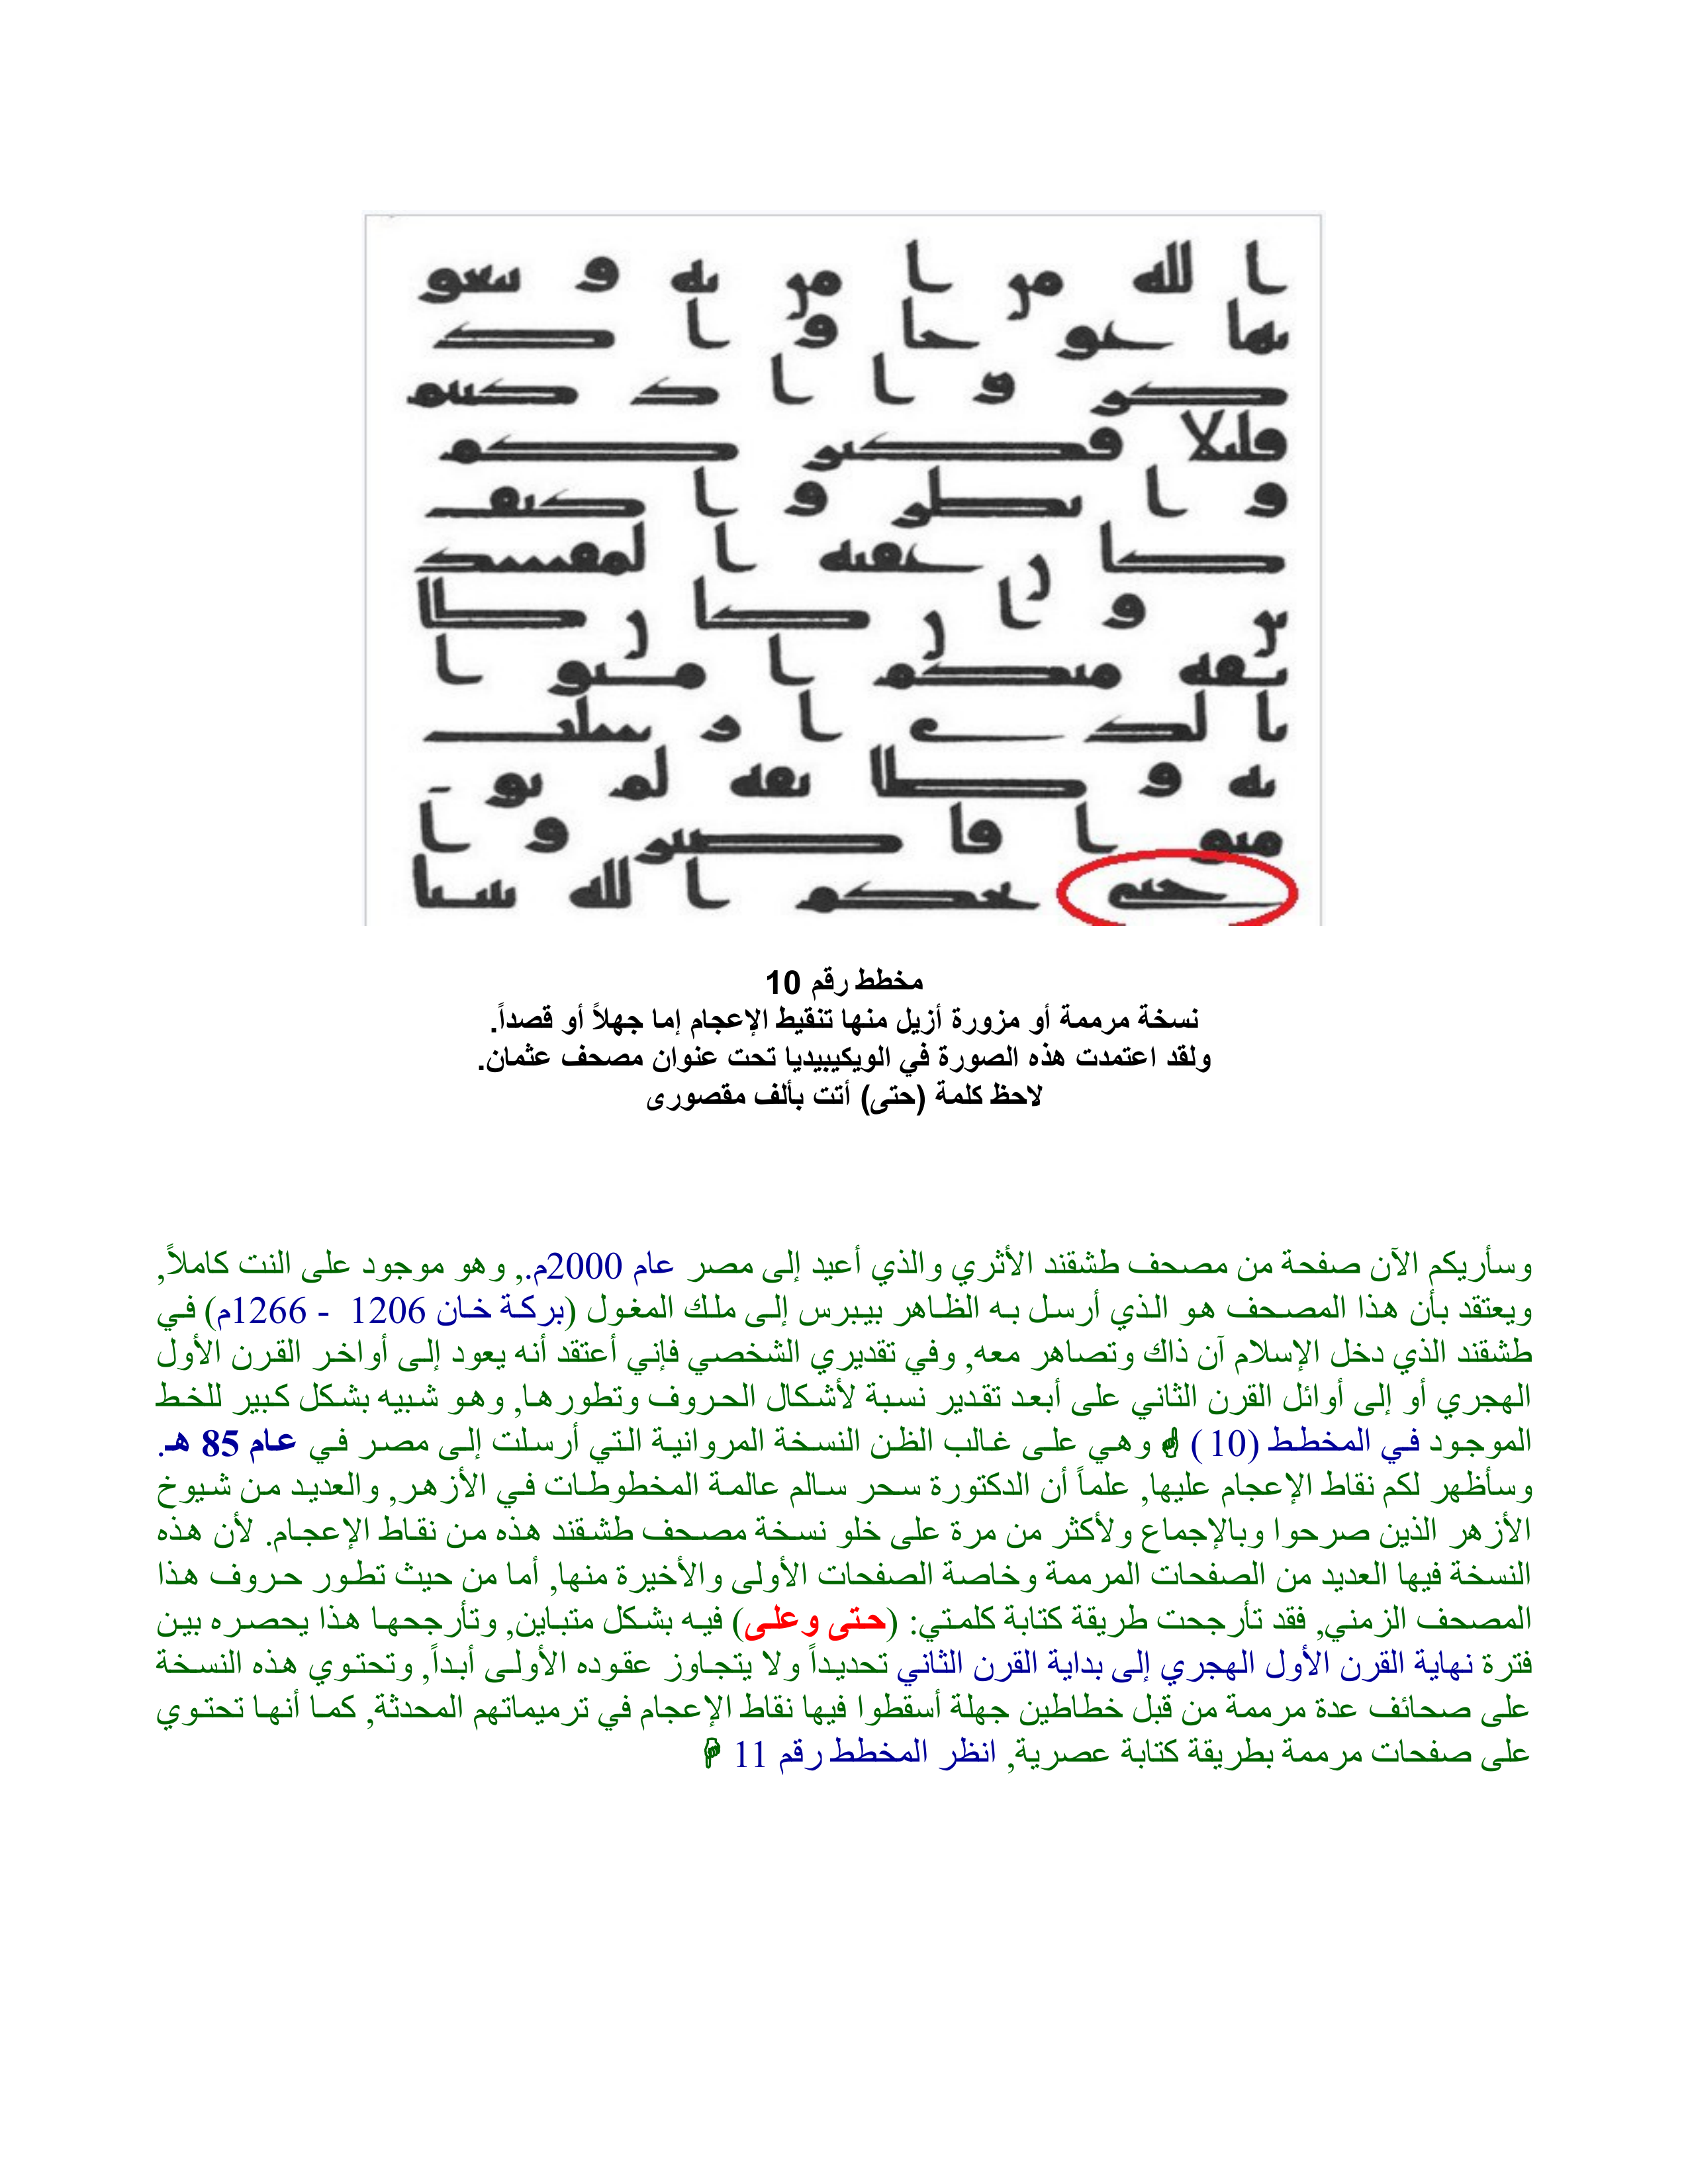 ا لله مر ا مر به و سعو
بها عو حا و ا ك
كو و ا ا د كنم
قليلا فكبر كم
و ا بطر و ا كيف
كا ر عقبه ا لمفسد
ير و ا ر كا ر طا
ئفه منكم ا منو ا
با لد ى ا ر سلت
به و طا ئفه لم يو -
منو ا فا صبر و ا
حتى يحكم ا لله بينا
مخطط رقم 10
نسخة مرممة أو مزورة أزيل منها تنقيط الإعجام إما جهلاً أو قصداً.
ولقد اعتمدت هذه الصورة في الويكيبيديا تحت عنوان مصحف عثمان.
لاحظ كلمة (حتى) أتت بألف مقصورى
وسأريكم الآن صفحة من مصحف طشقند الأثري والذي أعيد إلى مصر عام 2000م., وهو موجود على النت كاملاً,
ويعتقد بأن هذا المصحف هو الذي أرسل به الظاهر بيبرس إلى ملك المغول (بركة خان 1206 - 1266م) في
طشقند الذي دخل الإسلام آن ذاك وتصاهر معه, وفي تقديري الشخصي فإني أعتقد أنه يعود إلى أواخر القرن الأول
الهجري أو إلى أوائل القرن الثاني على أبعد تقدير نسبة لأشكال الحروف وتطورها, وهو شبيه بشكل كبير للخط
الموجود في المخطط (10 ) وهي على غالب الظن النسخة المروانية التي أرسلت إلى مصر في عام 85 هـ.
وسأظهر لكم نقاط الإعجام عليها, علماً أن الدكتورة سحر سالم عالمة المخطوطات في الأزهر, والعديد من شيوخ
الأزهر الذين صرحوا وبالإجماع ولأكثر من مرة على خلو نسخة مصحف طشقند هذه من نقاط الإعجام. لأن هذه
النسخة فيها العديد من الصفحات المرممة وخاصة الصفحات الأولى والأخيرة منها, أما من حيث تطور حروف هذا
المصحف الزمني, فقد تأرجحت طريقة كتابة كلمتي: (حتى وعلى) فيه بشكل متباين, وتأرجحها هذا يحصره بين
فترة نهاية القرن الأول الهجري إلى بداية القرن الثاني تحديداً ولا يتجاوز عقوده الأولى أبداً, وتحتوي هذه النسخة
على صحائف عدة مرممة من قبل خطاطين جهلة أسقطوا فيها نقاط الإعجام في ترميماتهم المحدثة, كما أنها تحتوي
على صفحات مرممة بطريقة كتابة عصرية, انظر المخطط رقم 11